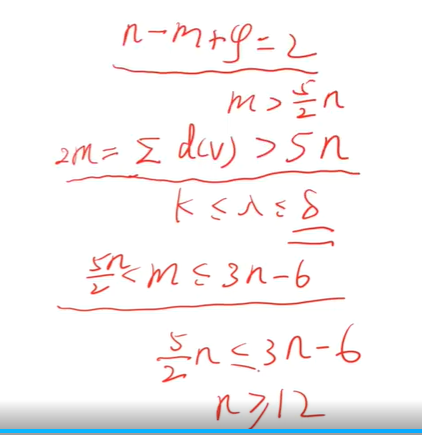 n-m+φ=2
m>5/2 n
2m=Σ d(v) >5n
k≤λ≤δ
5n/2<m≤3n-6
5/2 n≤3n-6
n≥12